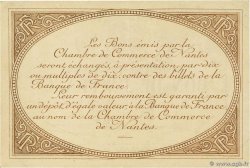 Les Bons émis par la
Chambre de Commerce de Nantes
seront échangés, à présentation, par dix
ou multiples de dix, contre des billets de la
Banque de France.
Leur remboursement est garanti par
un dépôt d'égale valeur à la Banque de France
au nom de la Chambre de Commerce
de Nantes.